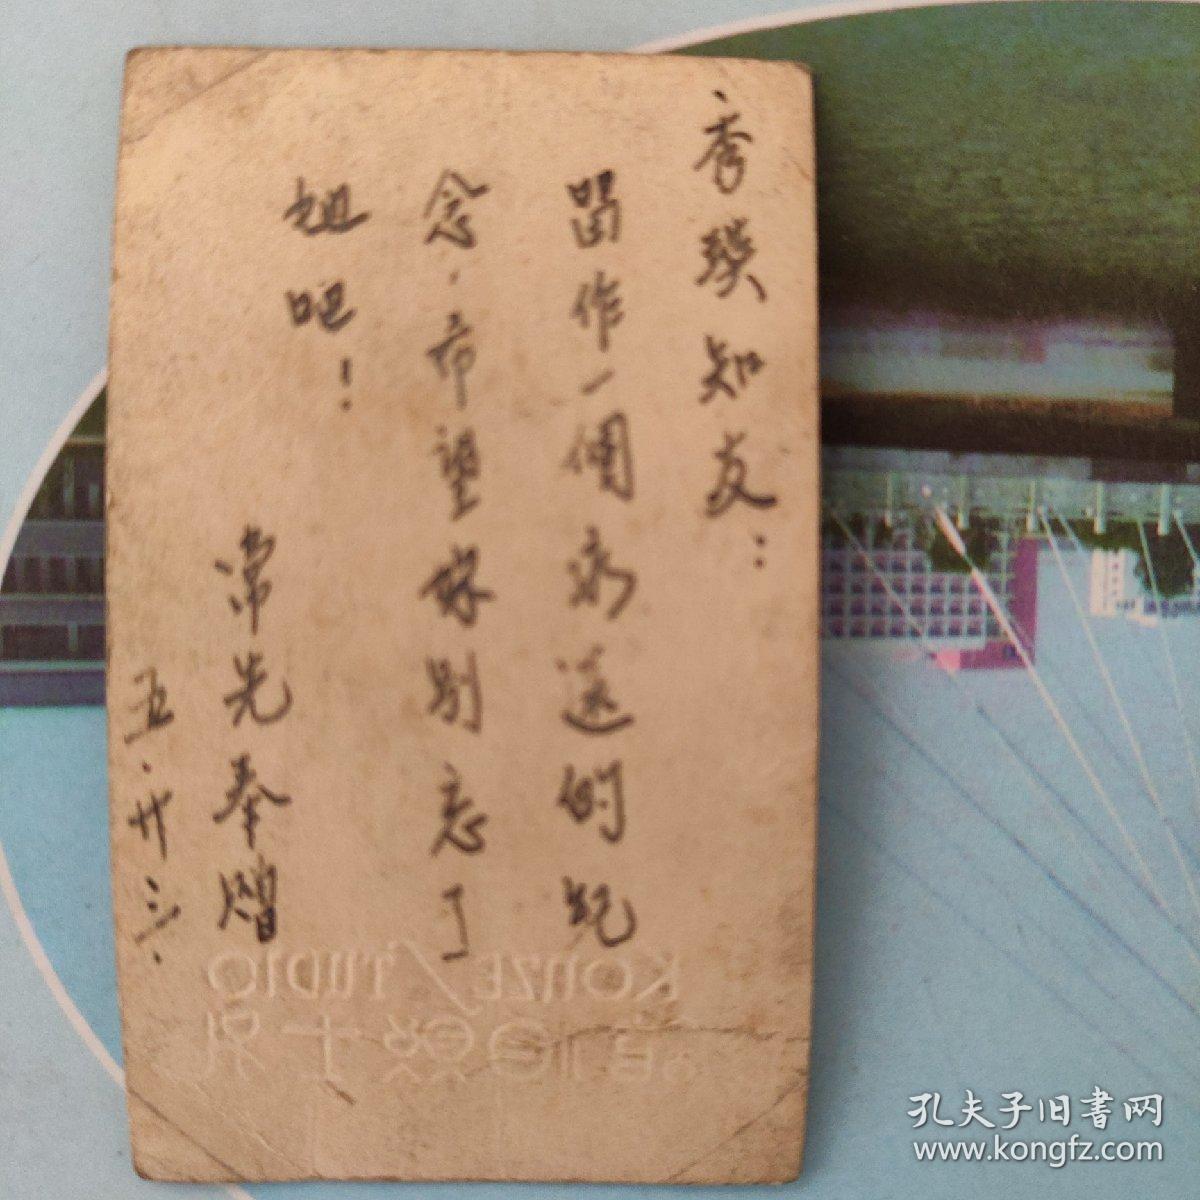 秀瑛知友：
留作一個永遠的紀
念，希望妳別忘了
她吧！
常先奉贈
五．廿三．
KOUZE STUDIO
孔夫子旧書网
www.kongfz.com